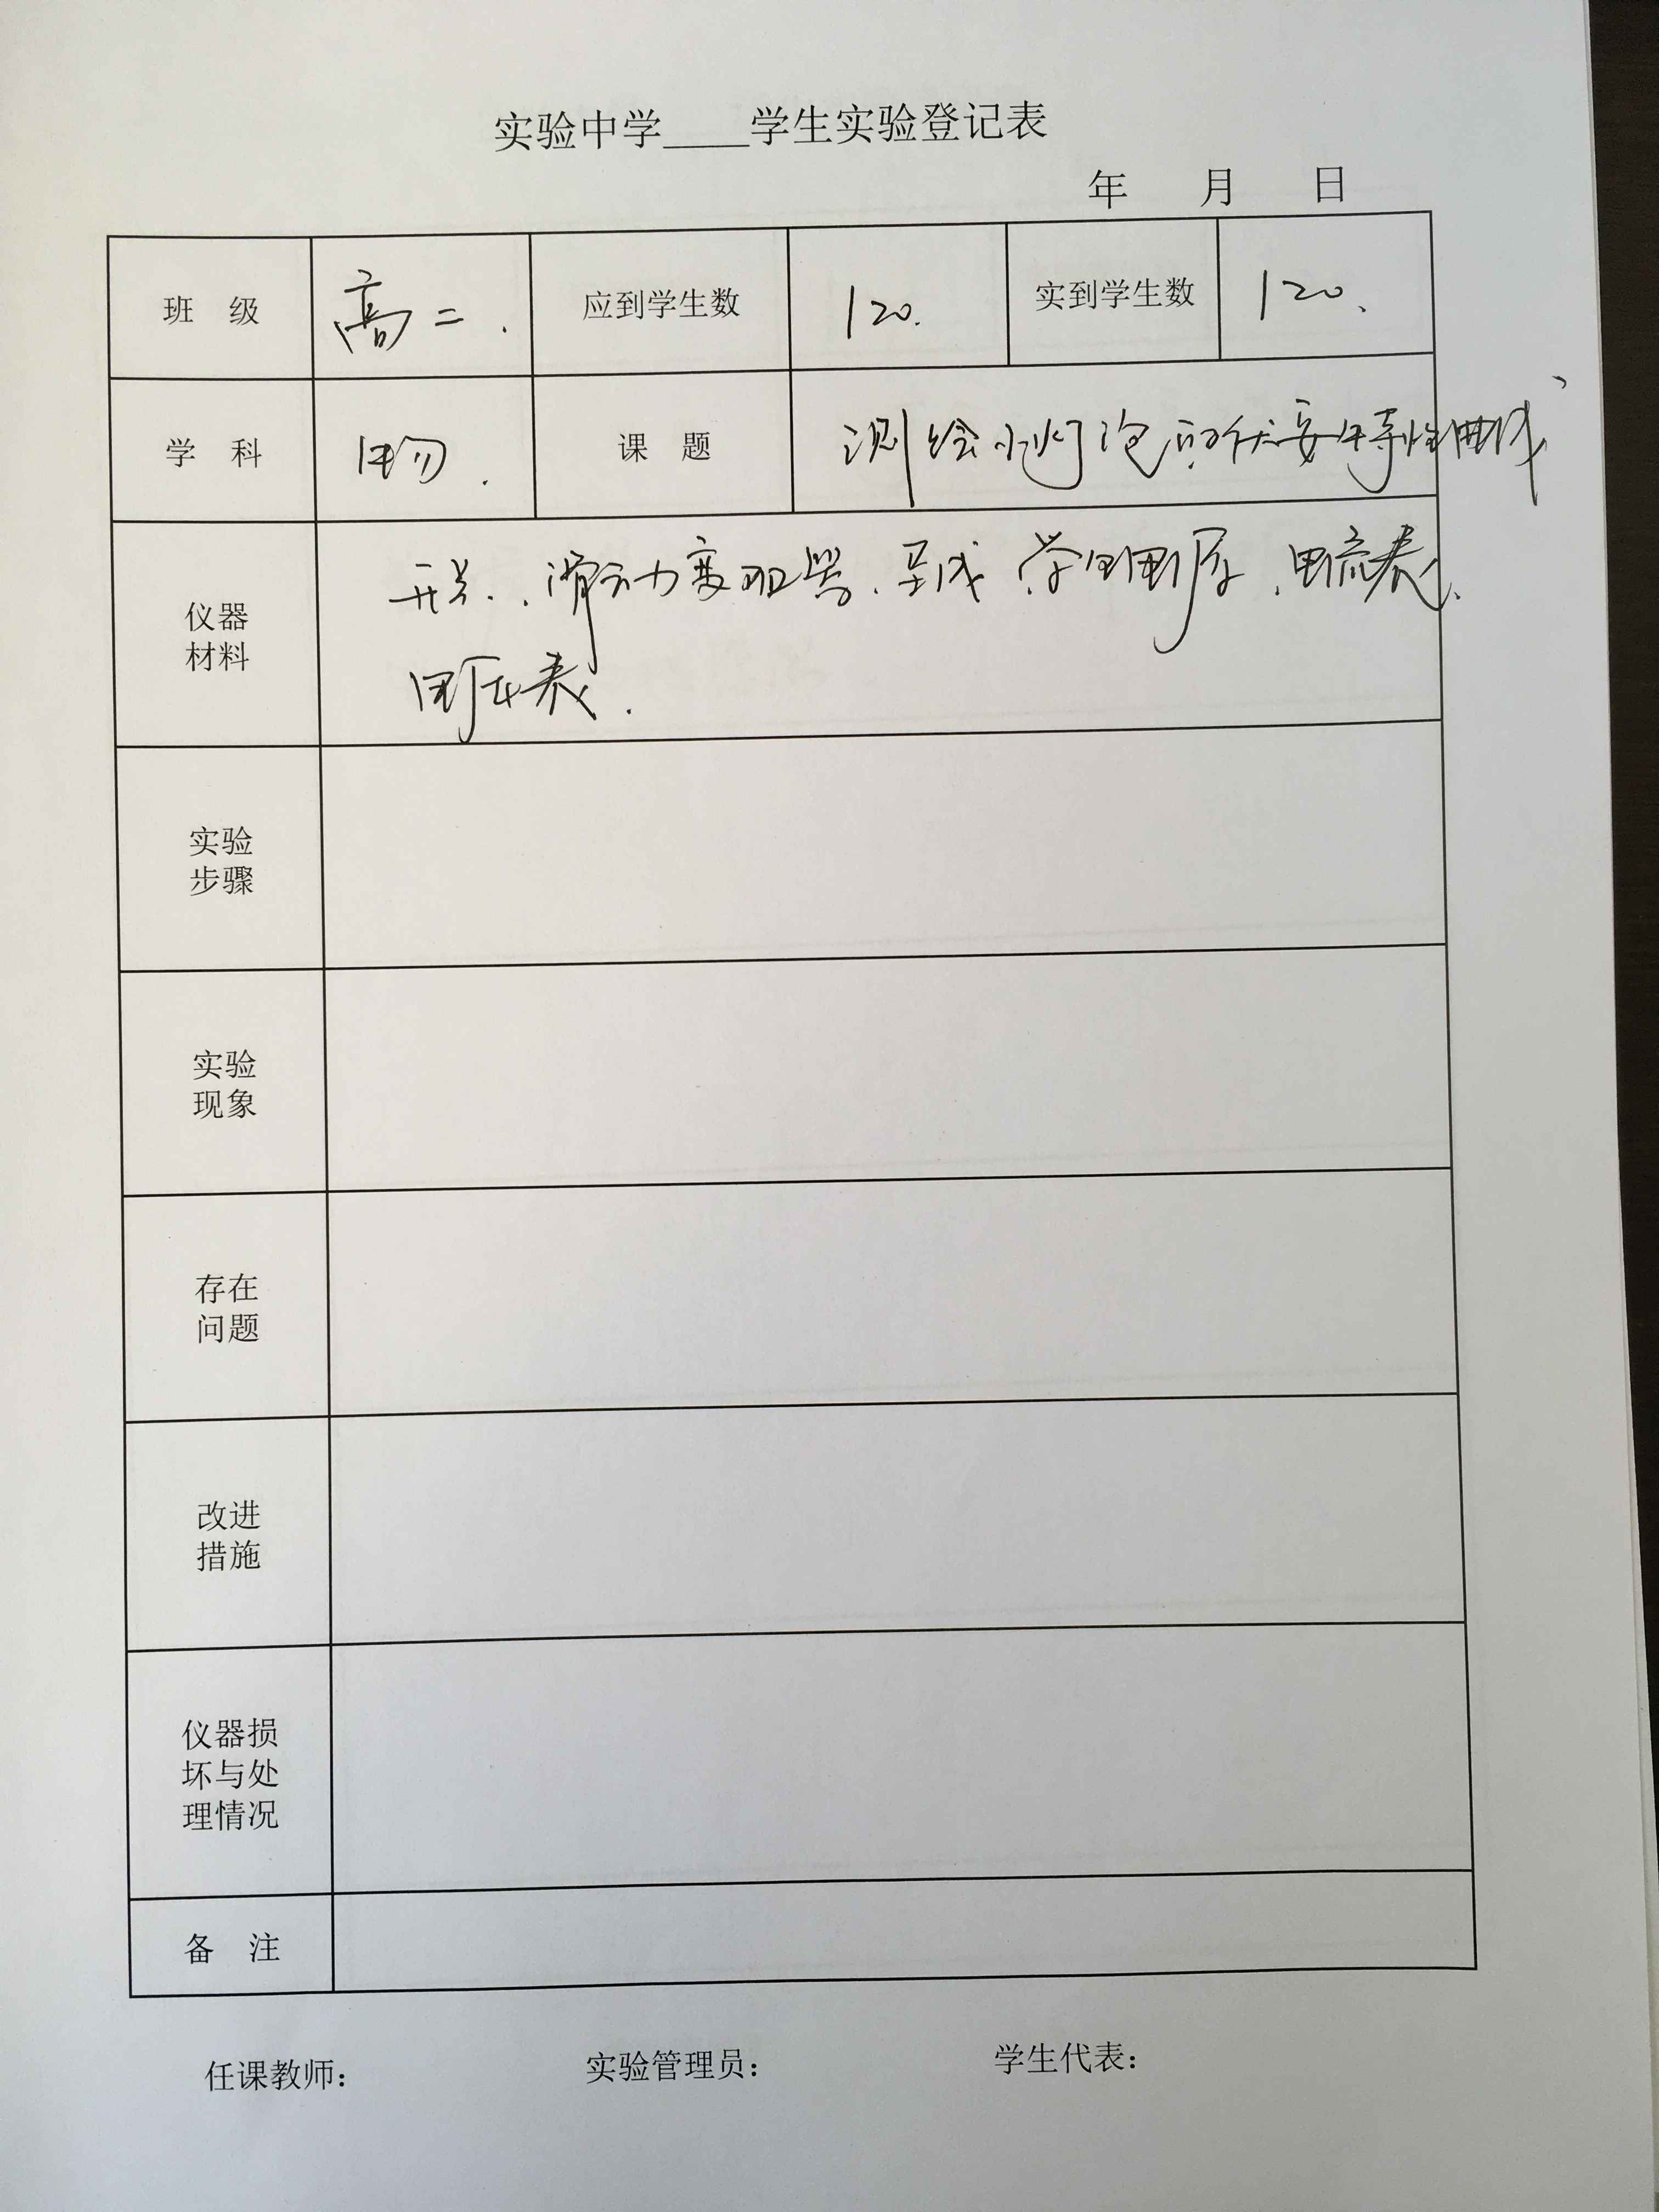 实验中学____学生实验登记表
年 月 日
班 级 高二. 应到学生数 120. 实到学生数 120.
学 科 物. 课 题 测绘小灯泡的伏安特性曲线
仪器
材料
开关、滑动变阻器、导线、学生电源、电流表、
电压表.
实验
步骤
实验
现象
存在
问题
改进
措施
仪器损
坏与处
理情况
备 注
任课教师： 实验管理员： 学生代表：